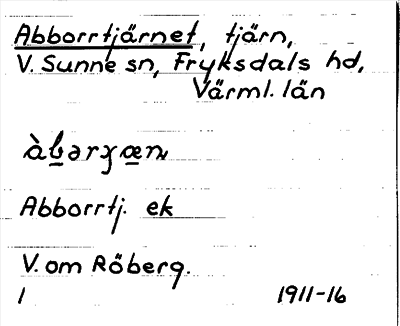 Abborrtjärnet, tjärn,
V. Sunne sn, Fryksdals hd,
Värml. län
Abborrtj. ek
V. om Röberg.
1 1911-16